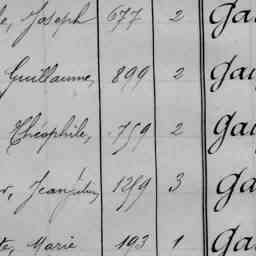 Joseph 677 2 Ga
Guillaume, 899 2 Ga
Théophile, 759 2 Ga
Jean 1259 3 Ga
Marie 193 1 Ga